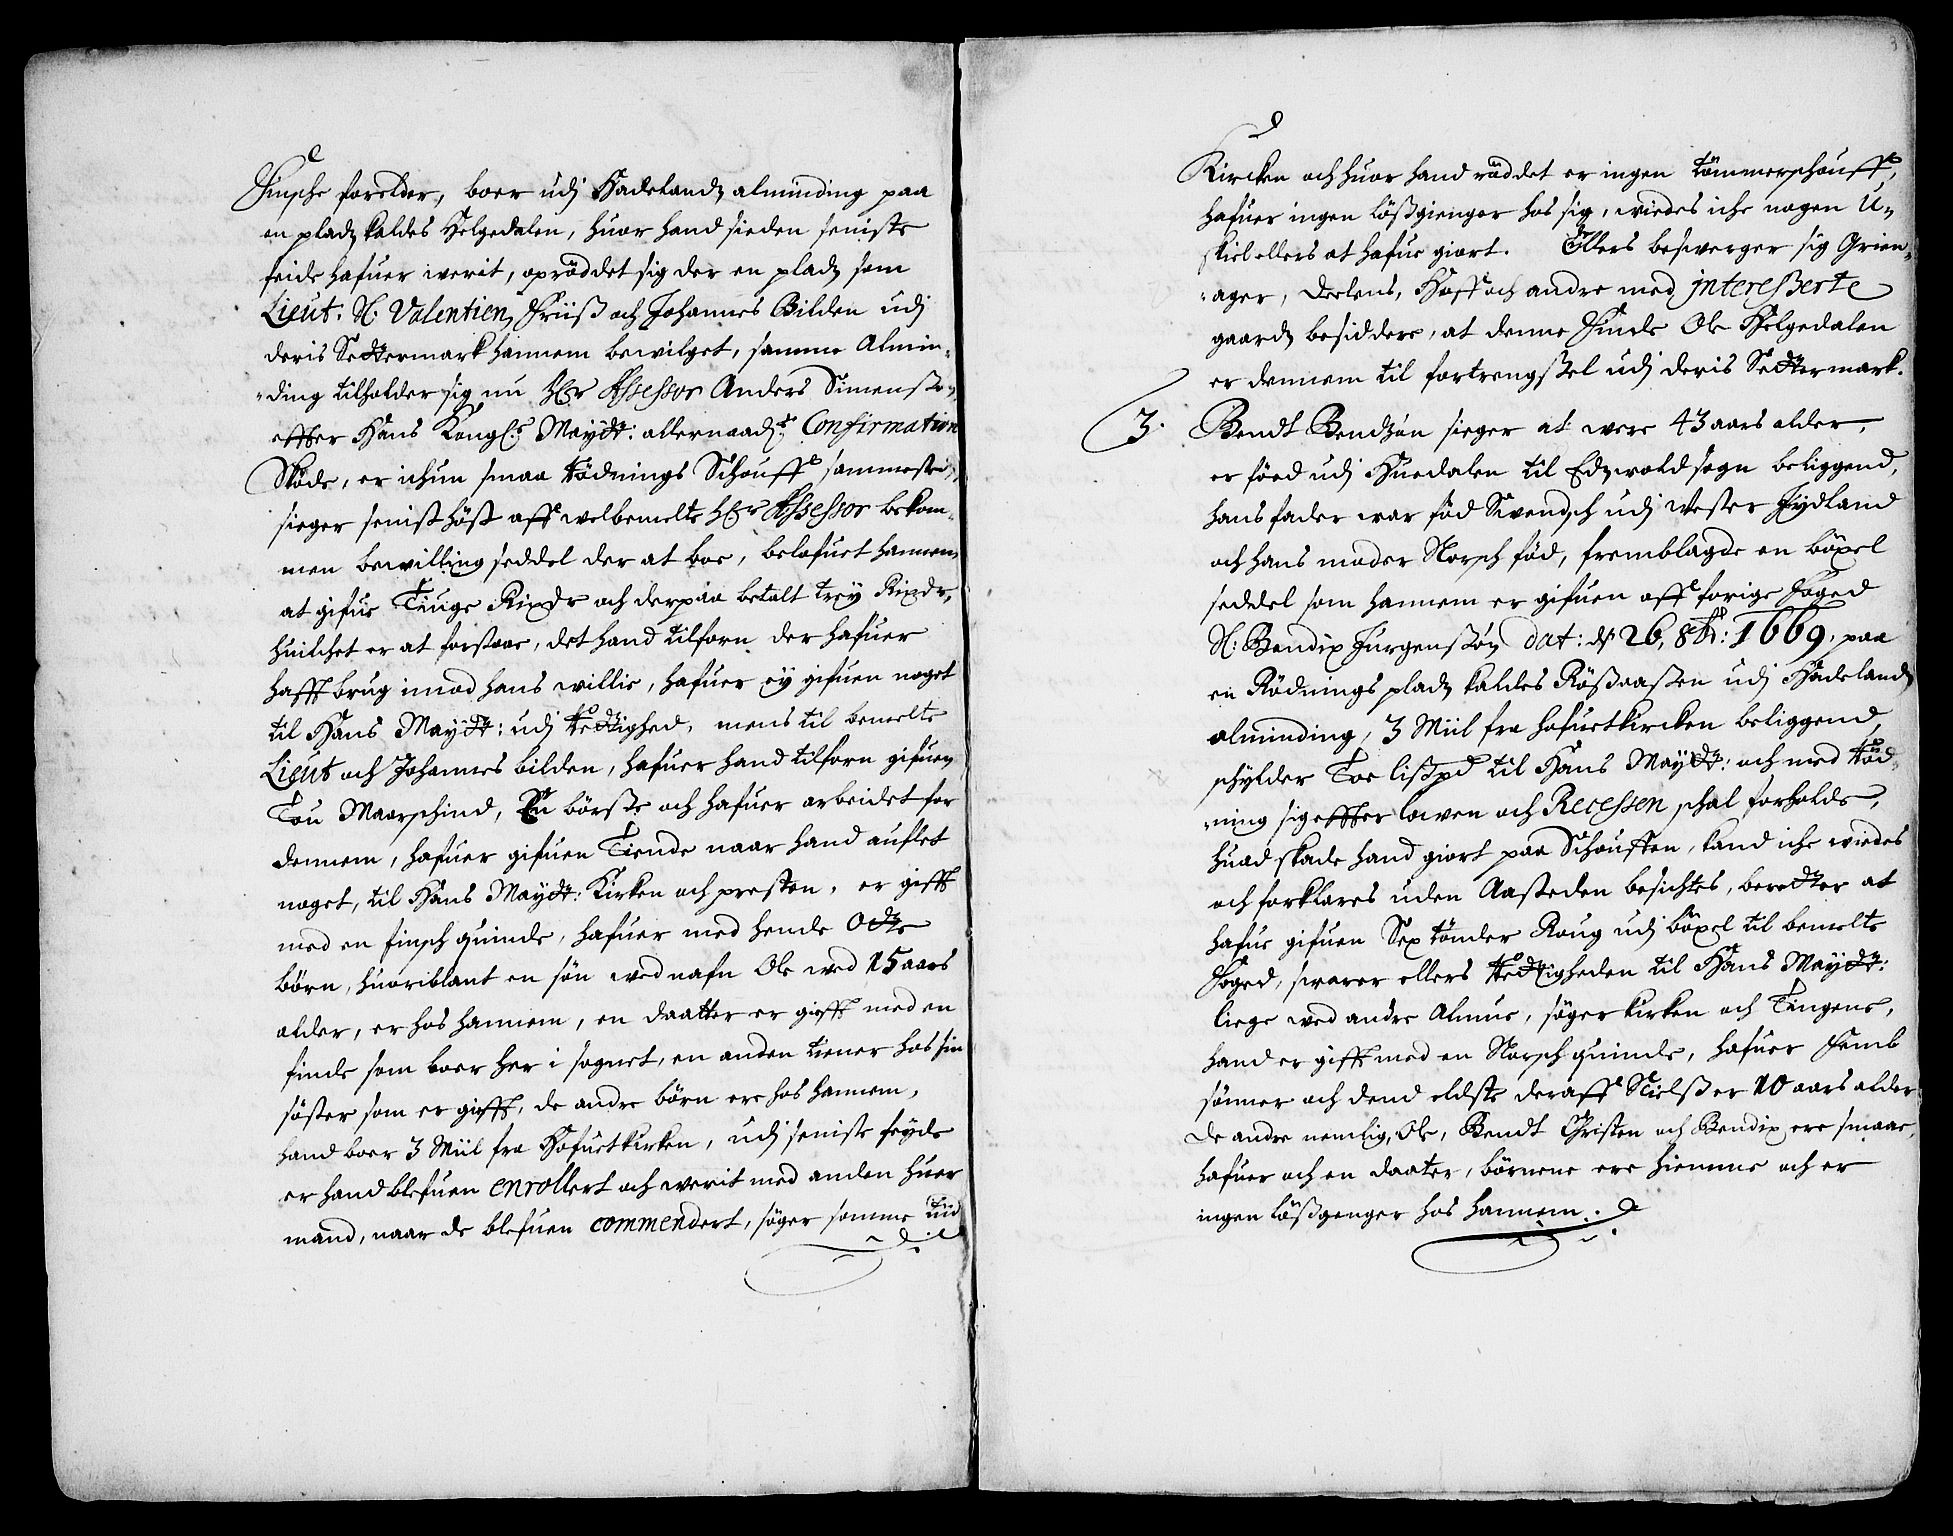 Finsche forelder, boer udj Hadelandz alminding paa
en pladz kaldes Helgedalen, huor hand sieden seniste
feide hafuer werit, oprøddet sig der en pladz som
Lieut. H. Valentien Friiß och Johannes Bilden udj
deris Settermark hannem bewilget, samme Almin-
-ding tilholder sig nu HEr Assessor Anders Simensen,
effter Hans Kongl: Maytt: allernaadst: Confirmation
Skøde, er ichun smaa Rødnings Schouff sammested,
sieger senist høst aff welbemelte HEr Assessor bekom-
men bewilling seddel der at boe, belofuet hannem
at gifue Tiuge Rixdr och derpaa betalt trey Rixdr,
huilchet er at forstaae, det hand tilforn der hafuer
hafft brug imod hans willie, hafuer ey gifuen noget
til Hans Maytt: udj Rettighed, mens til bemelte
Lieut och Johannes bilden, hafuer hand tilforn gifuen
Tou Maarschind, En børse och hafuer arbeidet for
dennem, hafuer gifuen Tiende naar hand auflet
noget, til Hans Maytt: Kirken och presten, er gifft
med en finsch quinde, hafuer med hende Otte
børn, huoriblant en søn wed nafn Ole wed 15 aars
alder, er hos hannem, en daatter er gifft med en
finde som boer her i sognet, en anden tiener hos sin
søster som er gifft, de andre børn ere hos hannem,
hand boer 3 Miil fra Hofuetkirken, udj seniste feyde
er hand blefuen enrollert och werit med anden huer
mand, naar de blefuen commendert, søger somme tiid
Kircken och huor hand røddet er ingen tømmerschouff,
hafuer ingen løßgienger hos sig, wiedes iche nogen U-
skiel ellers at hafue giort. Ellers beswerger sig Grien-
-ager, Deelens, Hoff och andre med interesserte
gaardz besiddere, at denne Finde Ole Helgedalen
er dennem til fortrengßel udj deris Settermark.
3. Bendt Bendzøn sieger at were 43 aars alder,
er føed udj Huedalen til Edzwold sogn beliggend,
hans fader war fød Swendsch udj Wester Jydland
och hans moder Norsch fød, fremblagde en bøxel
seddel som hannem er gifuen aff forige Foged
H: Bendix Jurgenßøn dat: d. 26, 8br: 1669. paa
en Rødnings pladz kaldes Røßaaßen udj Hadelandz
alminding, 3 Miil fra hofuetkircken beliggend,
schylder Toe lißpd til Hans Maytt: och med Rød-
-ning sig effter lowen och Recessen schal forholde,
huad skade hand giort paa Schouffen, kand iche wiedes
och forklares uden Aasteden besichtes, beretter at
hafue gifuen Sex tønder Roug udj bøxel til bemelte
Foged, swarer ellers Rettigheden til Hans Maytt:
liege wed andre Almue, søger kirken och Tingene,
hand er gifft med en Norsch quinde, hafuer Femb
sønner och dend eldste deraff Nielß er 10 aars alder
de andre nemlig, Ole, Bendt Christen och Bendix ere smaae,
hafuer och en daater, børnene ere hiemme och er
ingen løßgenger hos hannem.